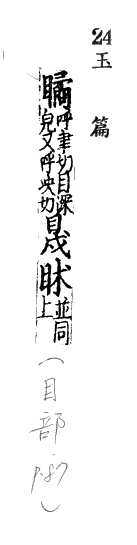 24
玉篇
瞲呼聿切目深
皃又呼决切
並同
上
(目部 p.87)